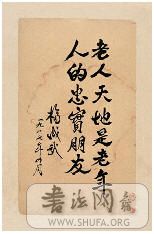 老人天地是老年
人的忠實朋友
楊成武
一九八七年
书法网
WWW.SHUFA.ORG